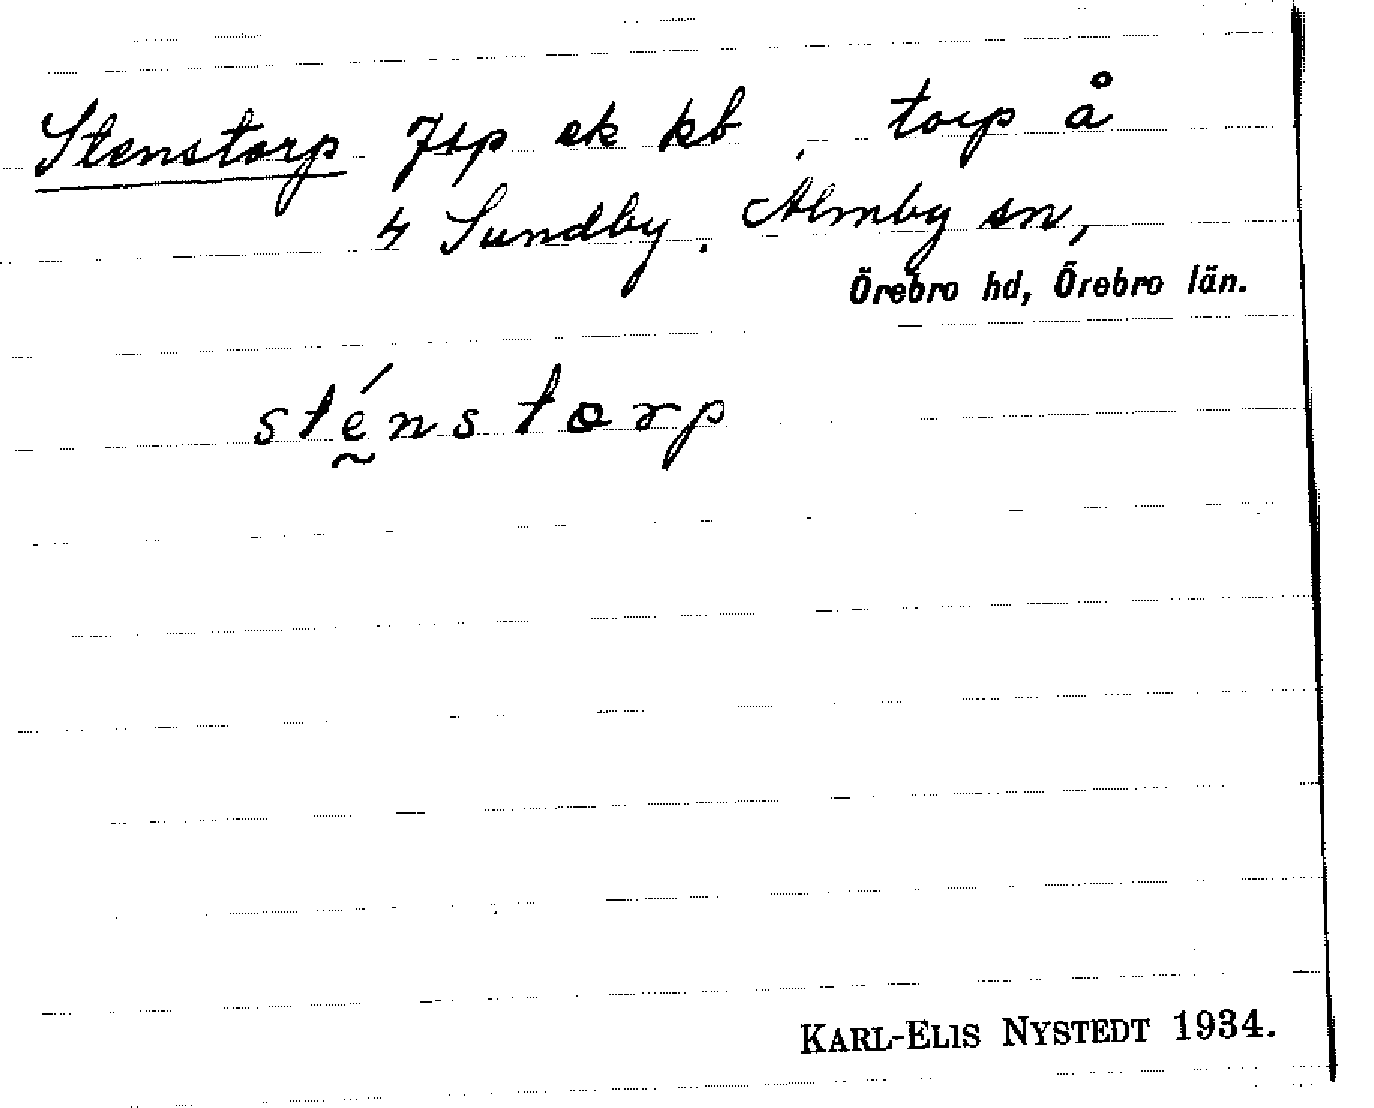 Stenstorp Jsp ek kb, torp å
4 Sundby. Almby sn,
Örebro hd, Örebro län.
sténstorp
KARL-ELIS NYSTEDT 1934.